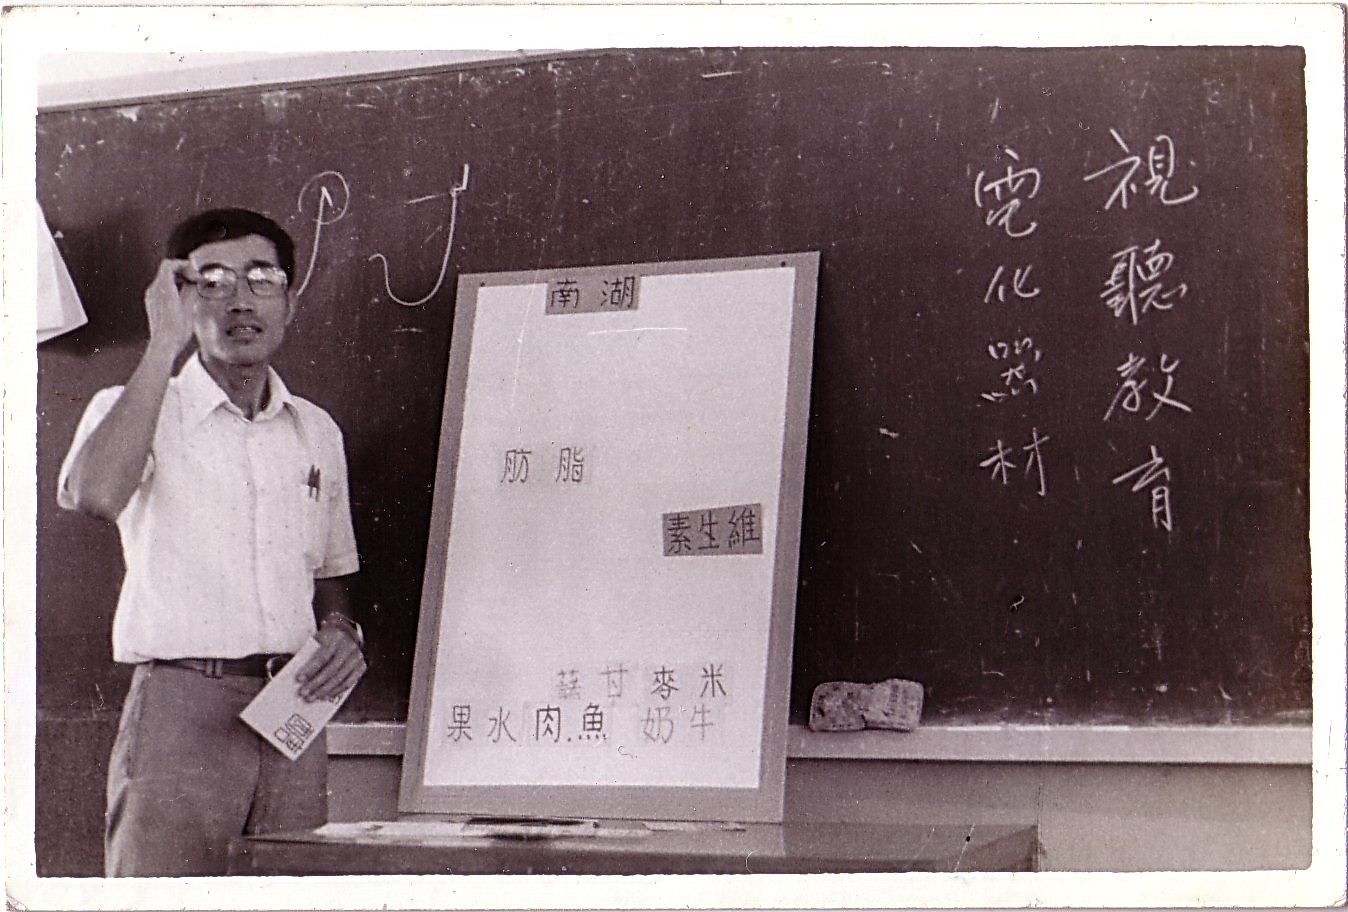 視聽教育
電化器材
湖南
脂肪
維生素
米麥甘藷
牛奶 魚.肉 水果